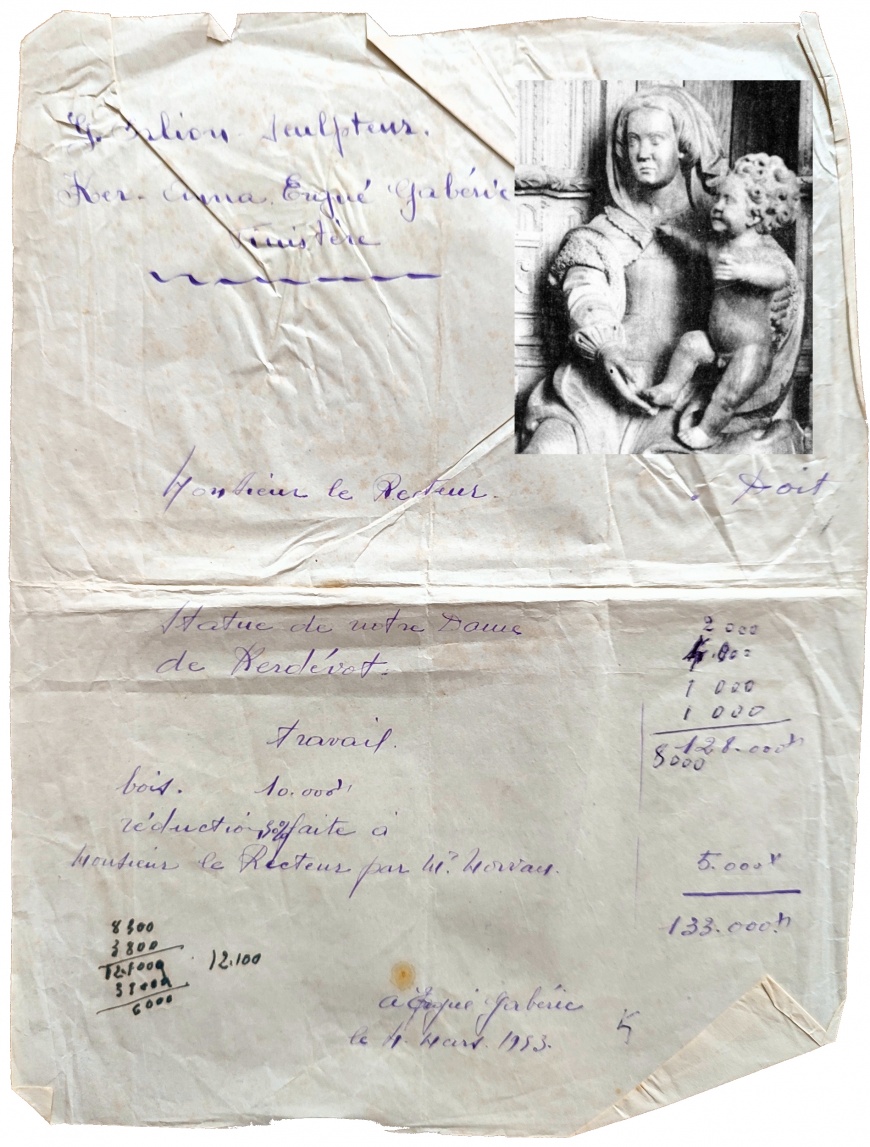 Sculpteur.
Ker. Anna. Ergué Gabéric
Finistère
Monsieur le Recteur. Doit
Statue de notre Dame
de Kerdévot.
2 000
1 000
1 000
128.000
8000
travail.
bois. 10.000
réduction 50% faite à
Monsieur le Recteur par Mr Morvan. 5.000
133.000
8300
3800
12.100
6000
à Ergué Gabéric
le 4 Mars. 1953.